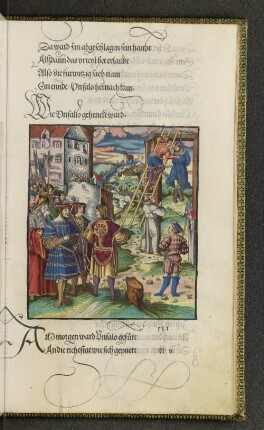 Da ward Im abgeschlagen sein haubt
Als dann das urteyl het erlaubt
Also die furwitzig sach nam
Ein ende · Unfalo hernach kam
Wie Unfallo gehenckt ward·
Am morgen ward Unfalo gefurt
An die richtstat wie sich gepuert